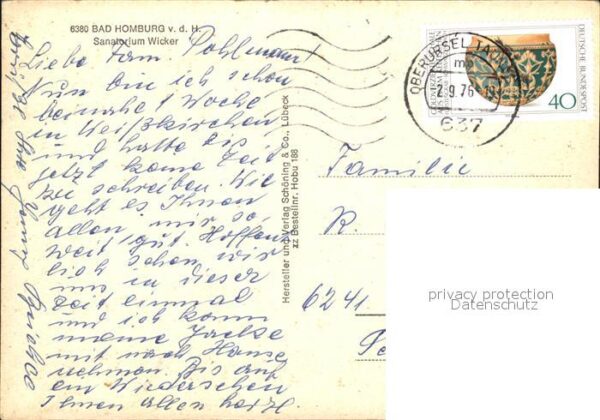 6380 BAD HOMBURG v. d. H.
Sanatorium Wicker
Liebe Fam. Pohlmann!
Nun bin ich schon
beinahe 1 Woche
in Weißkirchen
und hatte bis
jetzt keine Zeit
zu schreiben. Wie
geht es Ihnen
allen, mir so
weit gut. Hoffent
lich sehen wir
uns in dieser
Zeit einmal
und ich kann
meine Jacke
mit nach Hause
nehmen. Bis auf
ein Wiedersehen
Ihnen allen herzl.
Grüße Ihre
Hersteller und Verlag Schöning & Co., Lübeck
zz Bestellnr. Hobu 188
OBERURSEL (TAUNUS
mb
2.9.76
637
DEUTSCHE BUNDESPOST
40
Familie
R.
6241
privacy protection
Datenschutz